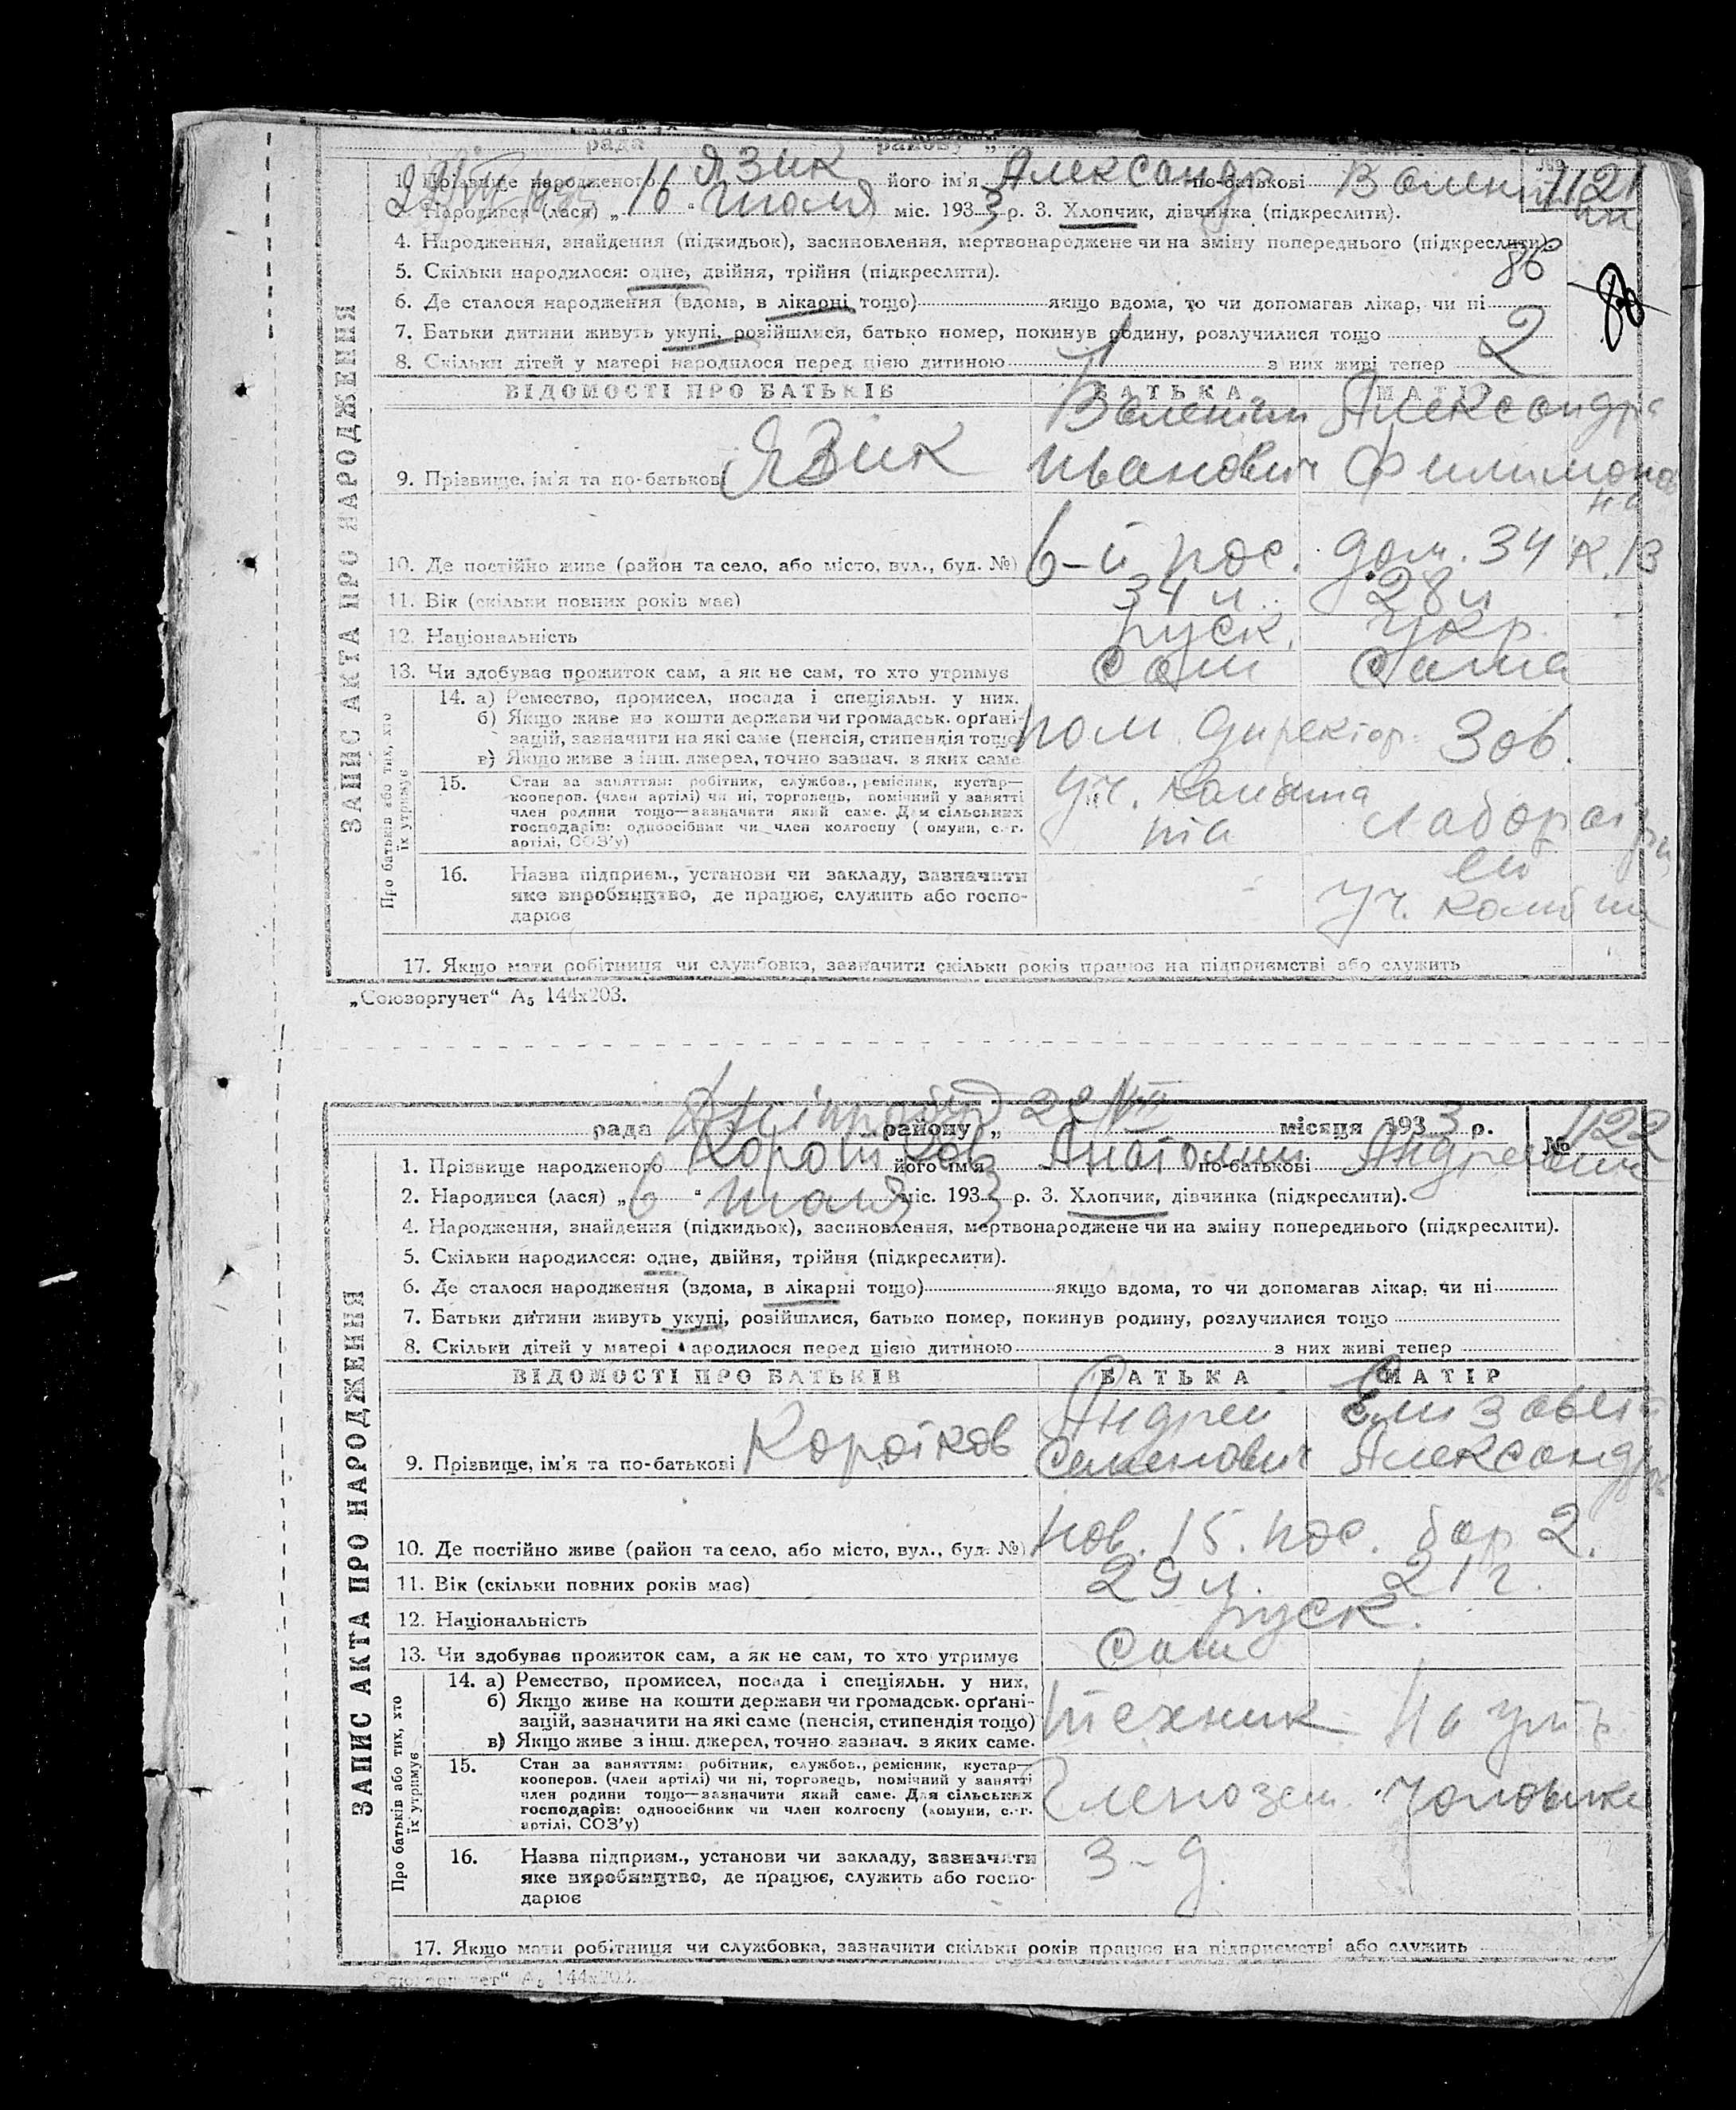 рада району
1. Прізвище народженого Язик його ім'я Александр по-батькові Валент 1121
2. Народився (лася) „16“ июля міс. 1933 р. 3. Хлопчик, дівчинка (підкреслити).
4. Народження, знайдення (підкидьок), засиновлення, мертвонароджене чи на зміну попереднього (підкреслити).
86
5. Скільки народилося: одне, двійня, трійня (підкреслити).
6. Де сталося народження (вдома, в лікарні тощо) якщо вдома, то чи допомагав лікар, чи ні
7. Батьки дитини живуть укупі, розійшлися, батько помер, покинув родину, розлучилися тощо
8. Скільки дітей у матері народилося перед цією дитиною 1 з них живі тепер 2
ЗАПИС АКТА ПРО НАРОДЖЕННЯ
ВІДОМОСТІ ПРО БАТЬКІВ БАТЬКА МАТІР
Валентин Александра
9. Прізвище, ім'я та по-батькові Язик Иванович Филимонов
на
10. Де постійно живе (район та село, або місто, вул., буд. №) 6-й пос. дом. 34 к. 13
11. Вік (скільки повних років має) 34 л. 28 л
12. Національність руск. укр.
13. Чи здобуває прожиток сам, а як не сам, то хто утримує сам сама
Про батьків або тих, хто їх утримує
14. а) Ремество, промисел, посада і спеціяльн. у них.
б) Якщо живе на кошти держави чи громадськ. орґані-
зацій, зазначити на які саме (пенсія, стипендія тощо) пом. директор. Зав.
в) Якщо живе з інш. джерел, точно зазнач. з яких саме
15. Стан за заняттям: робітник, службов., ремісник, кустар— уч. комбина
кооперов. (член артілі) чи ні, торговець, помічний у занятті
член родини тощо—зазначити який саме. Для сільських лаборатори
господарів: одноосібник чи член колгоспу (комуни, с.-г. та
артілі, СОЗ'у)
16. Назва підприєм., установи чи закладу, зазначити ей
яке виробництво, де працює, служить або госпо- уч. комбин
дарює
17. Якщо мати робітниця чи службовка, зазначити скільки років працює на підприємстві або служить
„Союзоргучет“ А₅ 144х203.
рада Дніпробуд району „22 VII місяця 1933 р. № 1122
1. Прізвище народженого Коротков його ім'я Анатолий по-батькові Андреевич
2. Народився (лася) „6“ июля міс. 1933 р. 3. Хлопчик, дівчинка (підкреслити).
4. Народження, знайдення (підкидьок), засиновлення, мертвонароджене чи на зміну попереднього (підкреслити).
5. Скільки народилося: одне, двійня, трійня (підкреслити).
6. Де сталося народження (вдома, в лікарні тощо) якщо вдома, то чи допомагав лікар, чи ні
7. Батьки дитини живуть укупі, розійшлися, батько помер, покинув родину, розлучилися тощо
8. Скільки дітей у матері народилося перед цією дитиною з них живі тепер
ЗАПИС АКТА ПРО НАРОДЖЕННЯ
ВІДОМОСТІ ПРО БАТЬКІВ БАТЬКА МАТІР
Андрей Елизавет
9. Прізвище, ім'я та по-батькові Коротков Семенович Александров
10. Де постійно живе (район та село, або місто, вул., буд. №) нов. 15. пос. бар 2.
11. Вік (скільки повних років має) 29 л. 21 г.
12. Національність руск.
13. Чи здобуває прожиток сам, а як не сам, то хто утримує сам
Про батьків або тих, хто їх утримує
14. а) Ремество, промисел, посада і спеціяльн. у них.
б) Якщо живе на кошти держави чи громадськ. орґані-
зацій, зазначити на які саме (пенсія, стипендія тощо) техник На утр
в) Якщо живе з інш. джерел, точно зазнач. з яких саме.
15. Стан за заняттям: робітник, службов., ремісник, кустар—
кооперов. (член артілі) чи ні, торговець, помічний у занятті
член родини тощо—зазначити який саме. Для сільських чоловіка
господарів: одноосібник чи член колгоспу (комуни, с.-г.
артілі, СОЗ'у)
16. Назва підприєм., установи чи закладу, зазначити 3-д.
яке виробництво, де працює, служить або госпо-
дарює
17. Якщо мати робітниця чи службовка, зазначити скільки років працює на підприємстві або служить
„Союзоргучет“ А₅ 144х203.